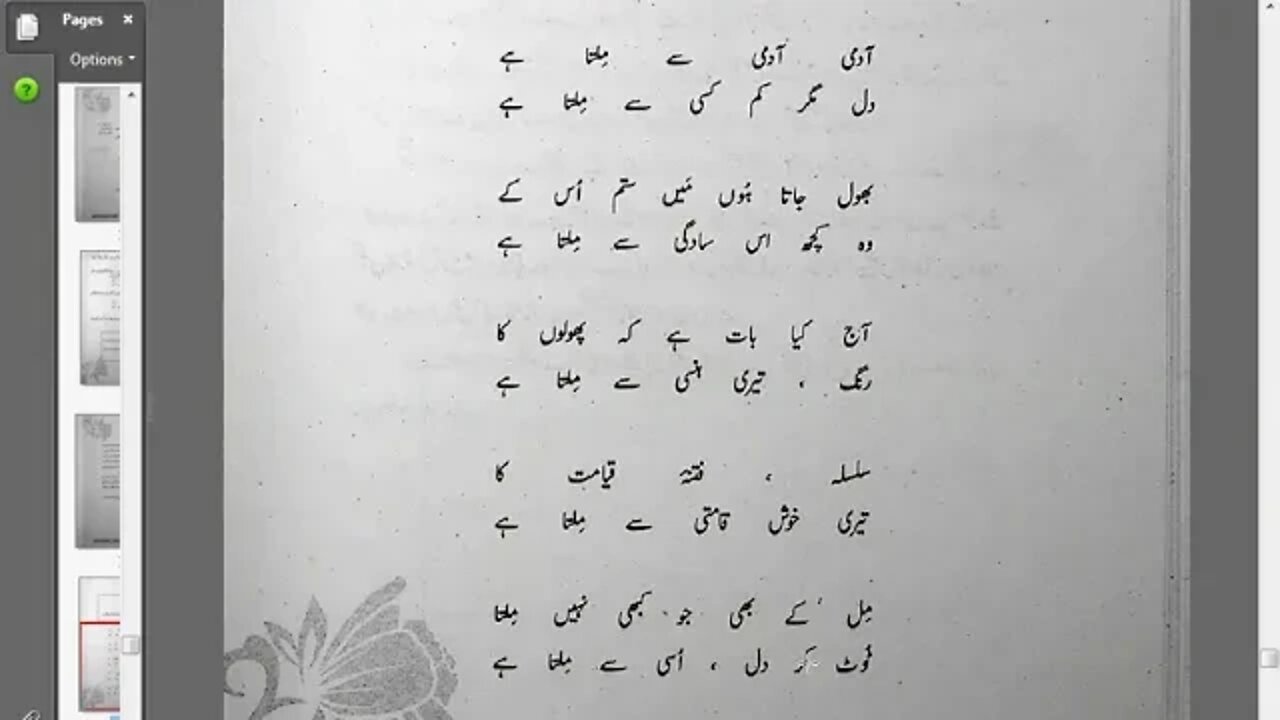 Pages ×
Options
?
آدمی آدمی سے مِلتا ہے
دل مگر کم کسی سے مِلتا ہے
بھول جاتا ہُوں مَیں ستم اُس کے
وہ کچھ اس سادگی سے مِلتا ہے
آج کیا بات ہے کہ پھولوں کا
رنگ ، تیری ہنسی سے مِلتا ہے
سلسلہ ، فتنۂ قیامت کا
تیری خوش قامتی سے مِلتا ہے
مِل کے بھی جو کبھی نہیں مِلتا
ٹوٹ کر دل ، اُسی سے مِلتا ہے